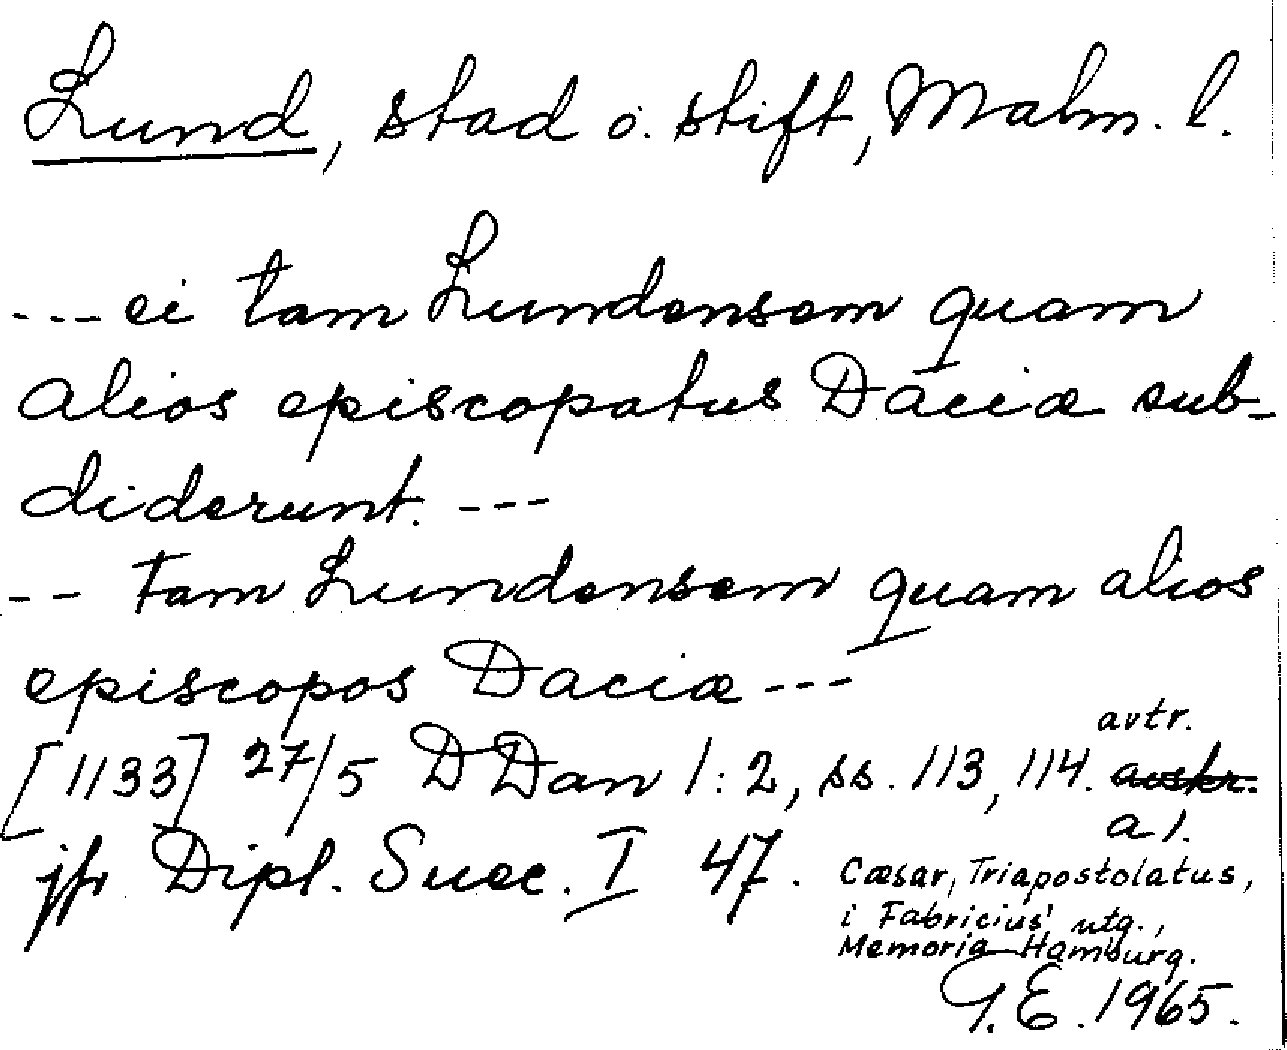 Lund, stad o. stift, Malm. l.
--- ei tam Lundensem quam
alios episcopatus Daciæ sub-
diderunt. ---
-- tam Lundensem quam alios
episcopos Daciæ ---
avtr.
[1133] 27/5 DDan 1:2, ss. 113, 114. avskr.
a 1.
jfr Dipl. Suec. I 47.
Cæsar, Triapostolatus,
i Fabricius' utg.,
Memoria Hamburg.
G.E. 1965.